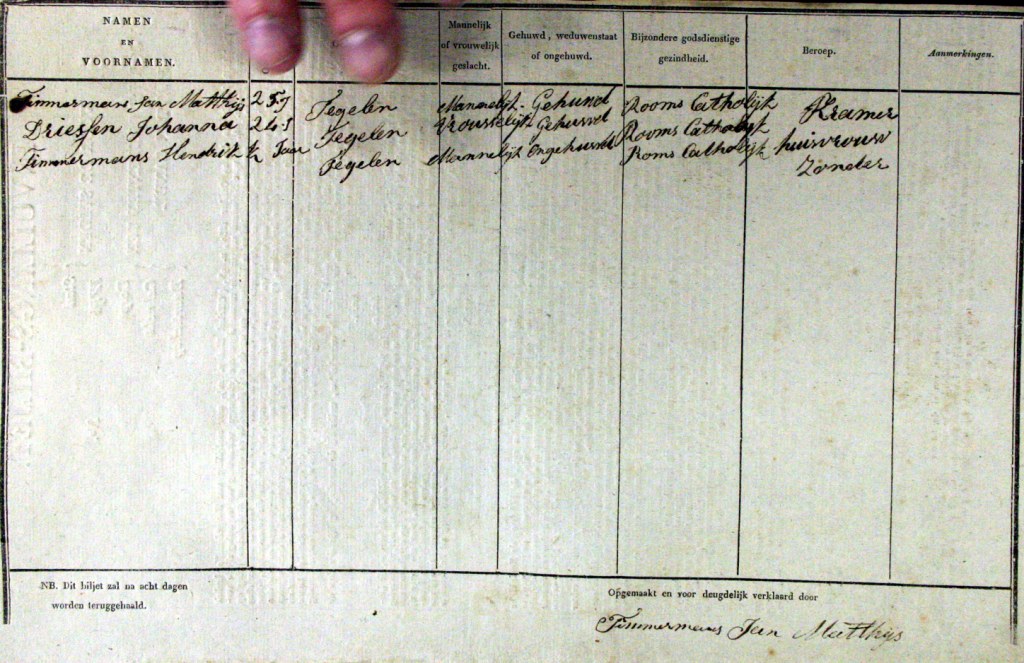 NAMEN EN VOORNAMEN. Mannelijk of vrouwelijk geslacht. Gehuwd, weduwenstaat of ongehuwd. Bijzondere godsdienstige gezindheid. Beroep. Aanmerkingen.
Timmermans Jan Matthijs 25 J Tegelen Mannelijk Gehuwd Rooms Catholijk Kramer
Driessen Johanna 24 J Tegelen Vrouwelijk Gehuwd Rooms Catholijk huisvrouw
Timmermans Hendrik ½ Jaar Tegelen Mannelijk Ongehuwd Roms Catholijk Zonder
NB. Dit biljet zal na acht dagen
worden teruggehaald.
Opgemaakt en voor deugdelijk verklaard door
Timmermans Jan Matthijs